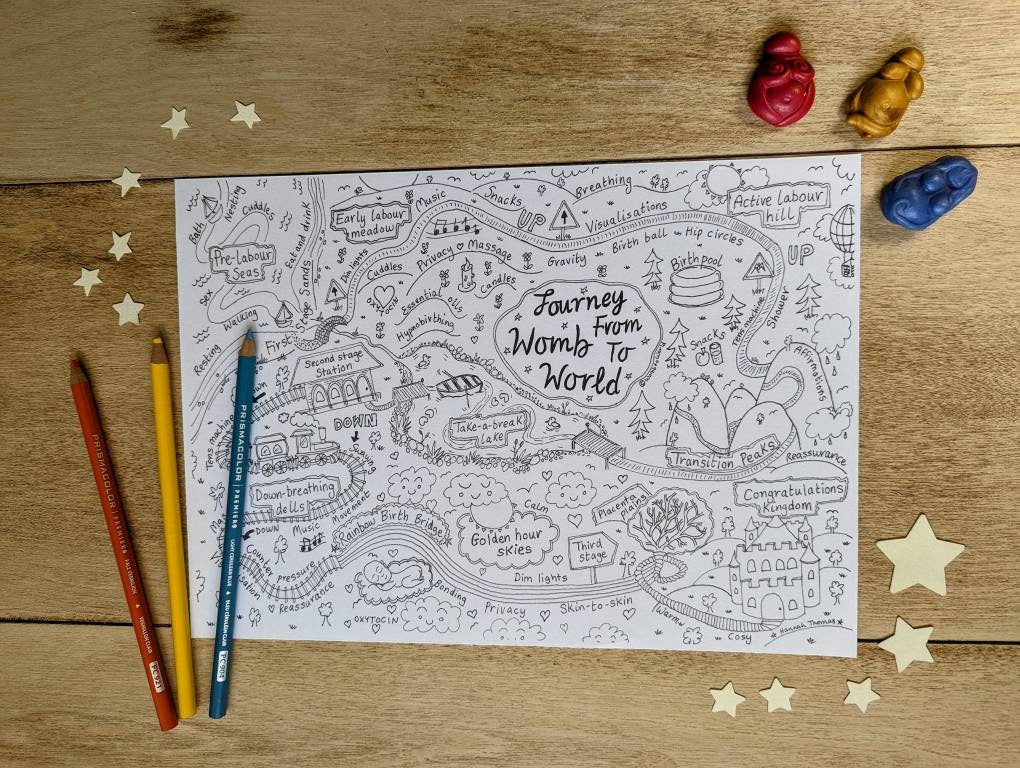 Bath
Nesting
Cuddles
Pre-labour
Seas
Eat and drink
Sex
Walking
Resting
First
Stage Sands
Early labour
meadow
Music
Snacks
UP
Breathing
Visualisations
Active labour
hill
Dim lights
Cuddles
Privacy
Massage
Gravity
Birth ball
Hip circles
UP
OXYTOCIN
Essential oils
Candles
Hypnobirthing
Birth pool
Tens machine
Shower
Snacks
Affirmations
Journey
From
Womb
To
World
Second stage
Station
DOWN
Take-a-break
Lake
Transition Peaks
Reassurance
Tens machine
Down-breathing
dells
DOWN
Music
Movement
Counter pressure
Reassurance
Rainbow Birth Bridge
Calm
Golden hour
skies
Placenta
Plains
Third
stage
Congratulations
Kingdom
Dim lights
Bonding
OXYTOCIN
Privacy
Skin-to-skin
Warm
Cosy
Hannah Thomas
PRISMACOLOR
PRISMACOLOR PREMIER